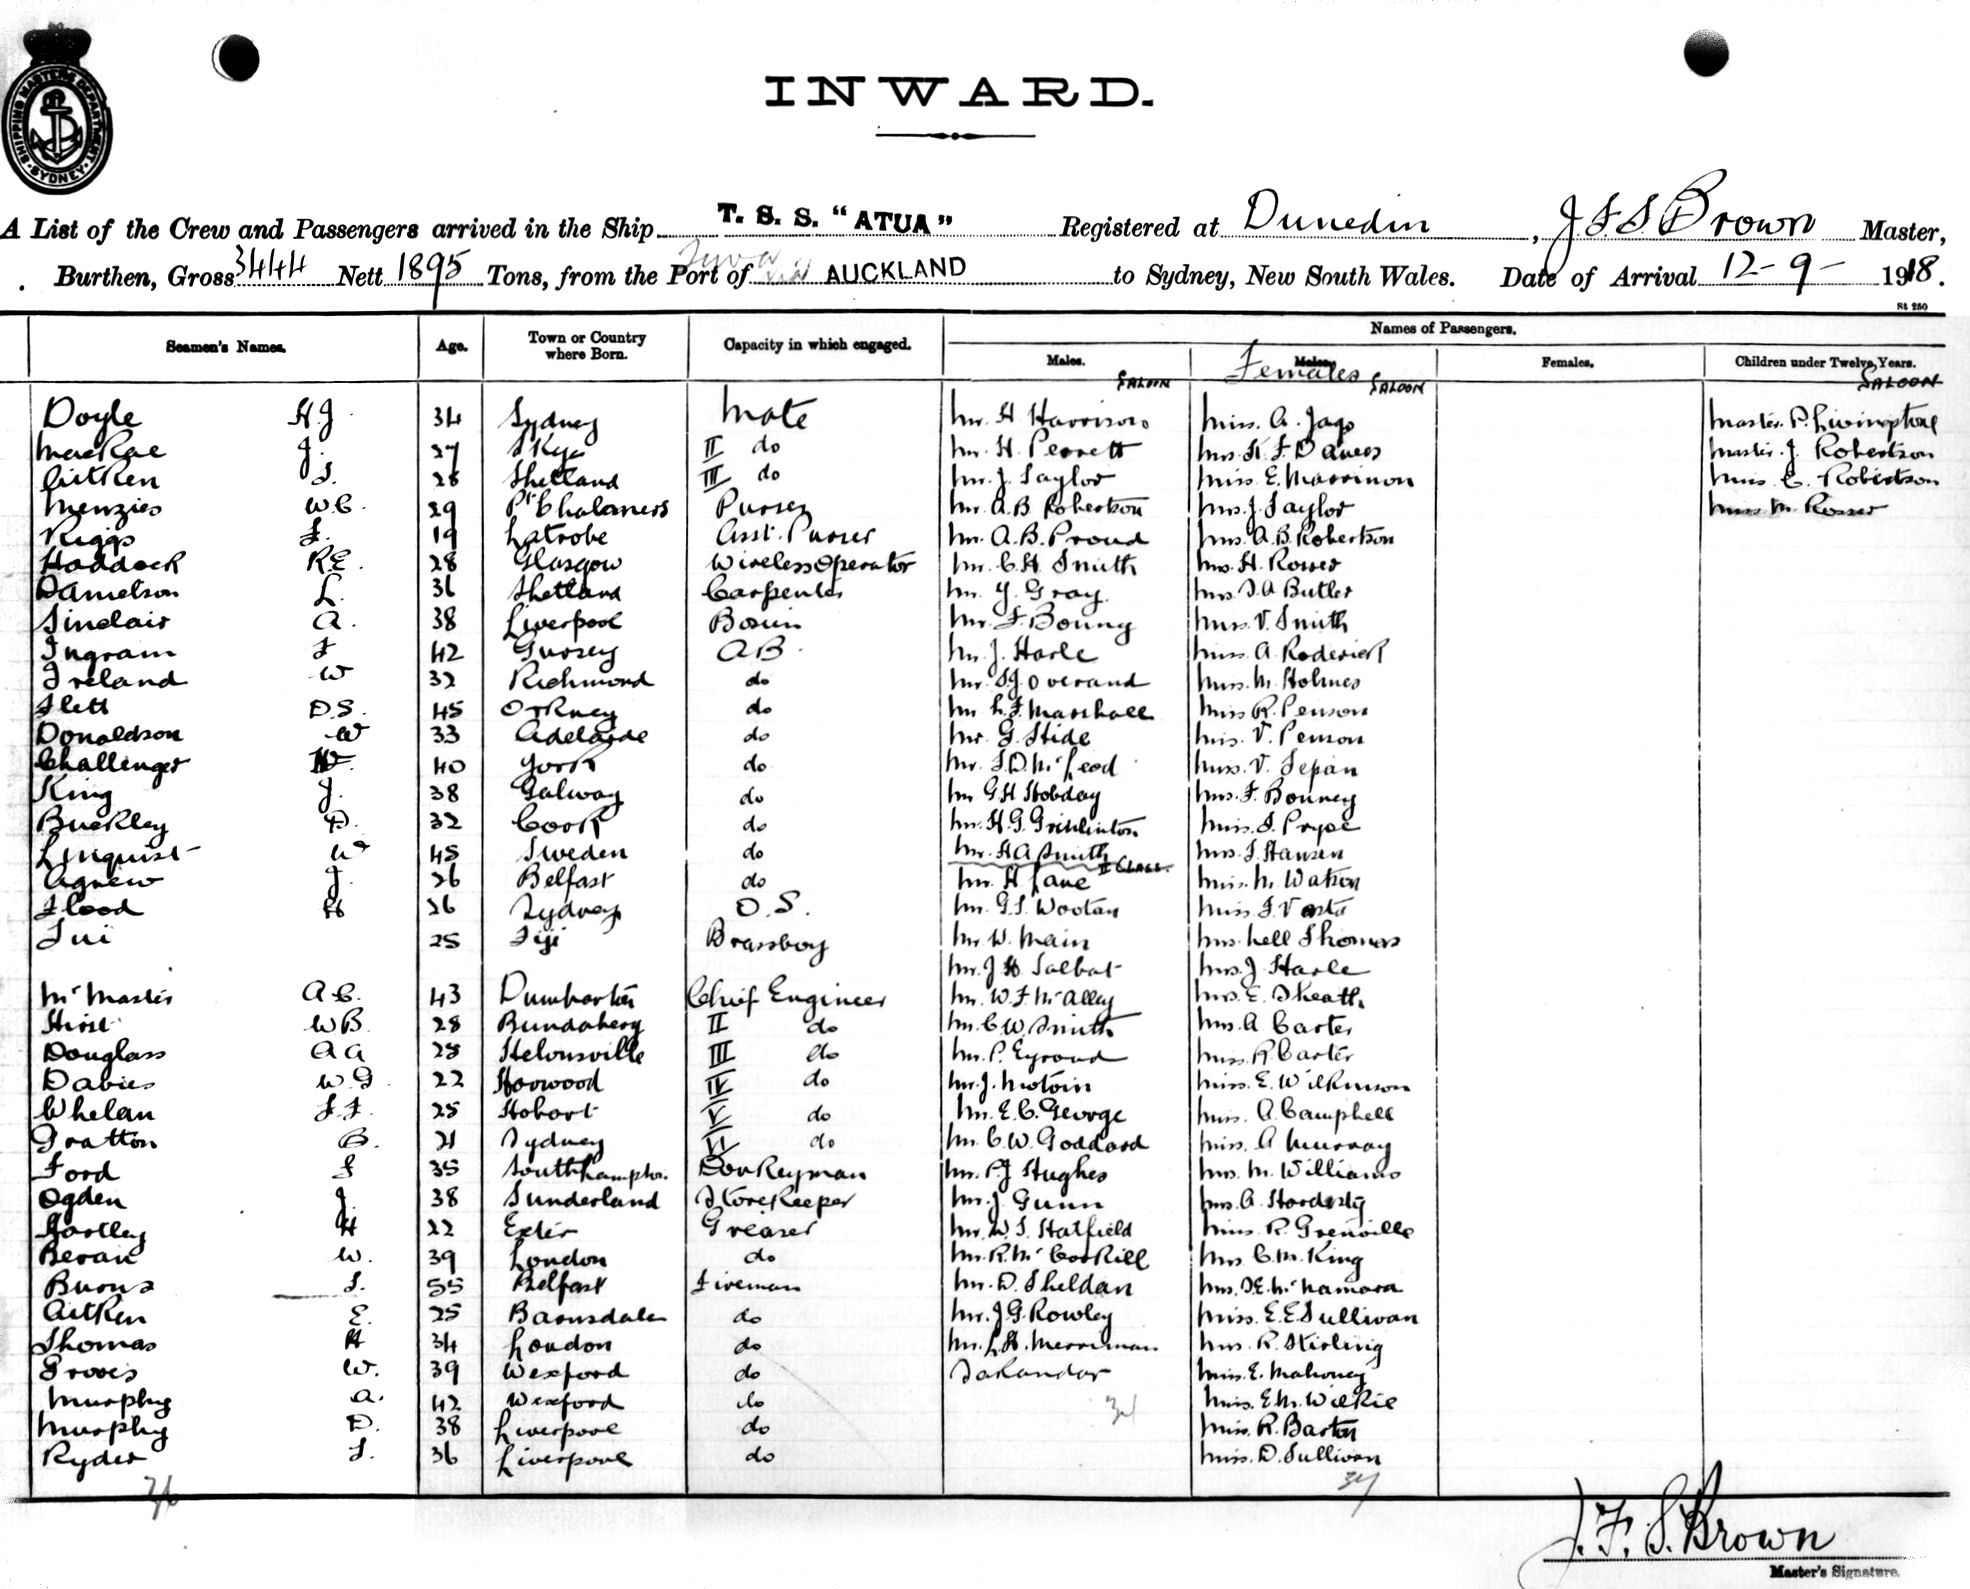 SHIPPING MASTERS DEPARTMENT SYDNEY
INWARD.
A List of the Crew and Passengers arrived in the Ship T. S. S. "ATUA" Registered at Dunedin, J F S Brown Master,
Burthen, Gross 3444 Nett 1895 Tons, from the Port of Suva via AUCKLAND to Sydney, New South Wales. Date of Arrival 12-9-1918.
St 250
Seamen's Names. Age. Town or Country where Born. Capacity in which engaged. Names of Passengers.
Males. Males. Females Females. Children under Twelve Years.
SALOON SALOON SALOON
Doyle H.J. 34 Sydney Mate Mr. H Harrison Miss. A. Jago Master. P. Livingstone
MacRae J. 27 Skye II do Mr. H. Perrett Mrs. H. F. Davies Master. J. Robertson
Aitken J. 28 Shetland III do Mr. J. Taylor Miss E. Morrison Miss C. Robertson
Menzies W.C. 29 Pt Chalmers Purser Mr. A.B Robertson Mrs. J. Taylor Miss M. Rosser
Riggs F. 19 Latrobe Asst. Purser Mr. A.B. Proud Mrs. A.B. Robertson
Haddock R.E. 28 Glasgow Wireless Operator Mr. C.H. Smith Mrs. H. Rosser
Danielson L. 36 Shetland Carpenter Mr. Y. Gray Mrs. J.A Butler
Sinclair A. 38 Liverpool Bosun Mr. F. Bonny Miss. V. Smith
Ingram F 42 Gursey A B. Mr. J. Harle Miss. A Roderick
Ireland W 32 Richmond do Mr. S J Overand Miss. M. Holmes
Flett D.S. 45 Orkney do Mr L. F. Marshall Miss R. Penson
Donaldson W 33 Adelaide do Mr. G. Hide Miss. V. Penson
Challenger W. 40 York do Mr. J. D. McLeod Miss. V. Sepan
King J. 38 Galway do Mr G H Hobday Mrs. F. Bonney
Buckley D. 32 Cork do Mr. H. G. Grihlinton Miss. S. Pryse
Linquist W 45 Sweden do Mr. H A Smith Mrs. J. Hansen
II CLASS.
Agnew J. 26 Belfast do Mr. H Lane Miss. M. Watson
Flood H 26 Sydney O.S. Mr. G. S. Wootan Miss. J. Vasta
Tui 25 Fiji Brassboy Mr. W. Main Mrs. Nell Thomas
Mr. J H Talbat Mrs. J. Harle
McMaster A C. 43 Dumbarton Chief Engineer Mr. W. F. McAlley Mrs. E. Sheath
Hirst W B. 28 Bundaberg II do Mr. C W. Smith Mrs. A Carter
Douglass A A 28 Helensville III do Mr. P. Eyraud Miss. R. Carter
Davies W. G 22 Norwood IV do Mr. J. Motoin Miss. E. Wilkinson
Whelan J. F. 25 Hobart V do Mr. E. C. George Miss. A Campbell
Gratton B. 21 Sydney VI do Mr. C. W. Goddard Miss. A Murray
Ford F 35 Southampton Donkeyman Mr. P. J Hughes Mrs. M. Williams
Ogden J. 38 Sunderland Storekeeper Mr. J. Gunn Mrs. A. Hardesty
Hartley H 22 Exter Greaser Mr. W. S. Hatfield Miss R. Grenville
Bevan W. 39 London do Mr. R. McCorkill Mrs C. M. King
Burns J. 55 Belfast Fireman Mr. D. Sheldan Mrs. J. E. McNamara
Aitken E. 25 Barnsdale do Mr. J. G. Rowley Miss. E. E Sullivan
Thomas H 34 London do Mr. L. H. Merriman Mrs. R. Stirling
Groves W. 39 Wexford do Sakandar Miss. E. Mahoney
Murphy A. 42 Wexford do Miss. E. M. Wilkie
Murphy D. 38 Liverpool do Miss. R. Barton
Ryder J. 36 Liverpool do Miss. D. Sullivan
36 34 37
J. F. S. Brown
Master's Signature.